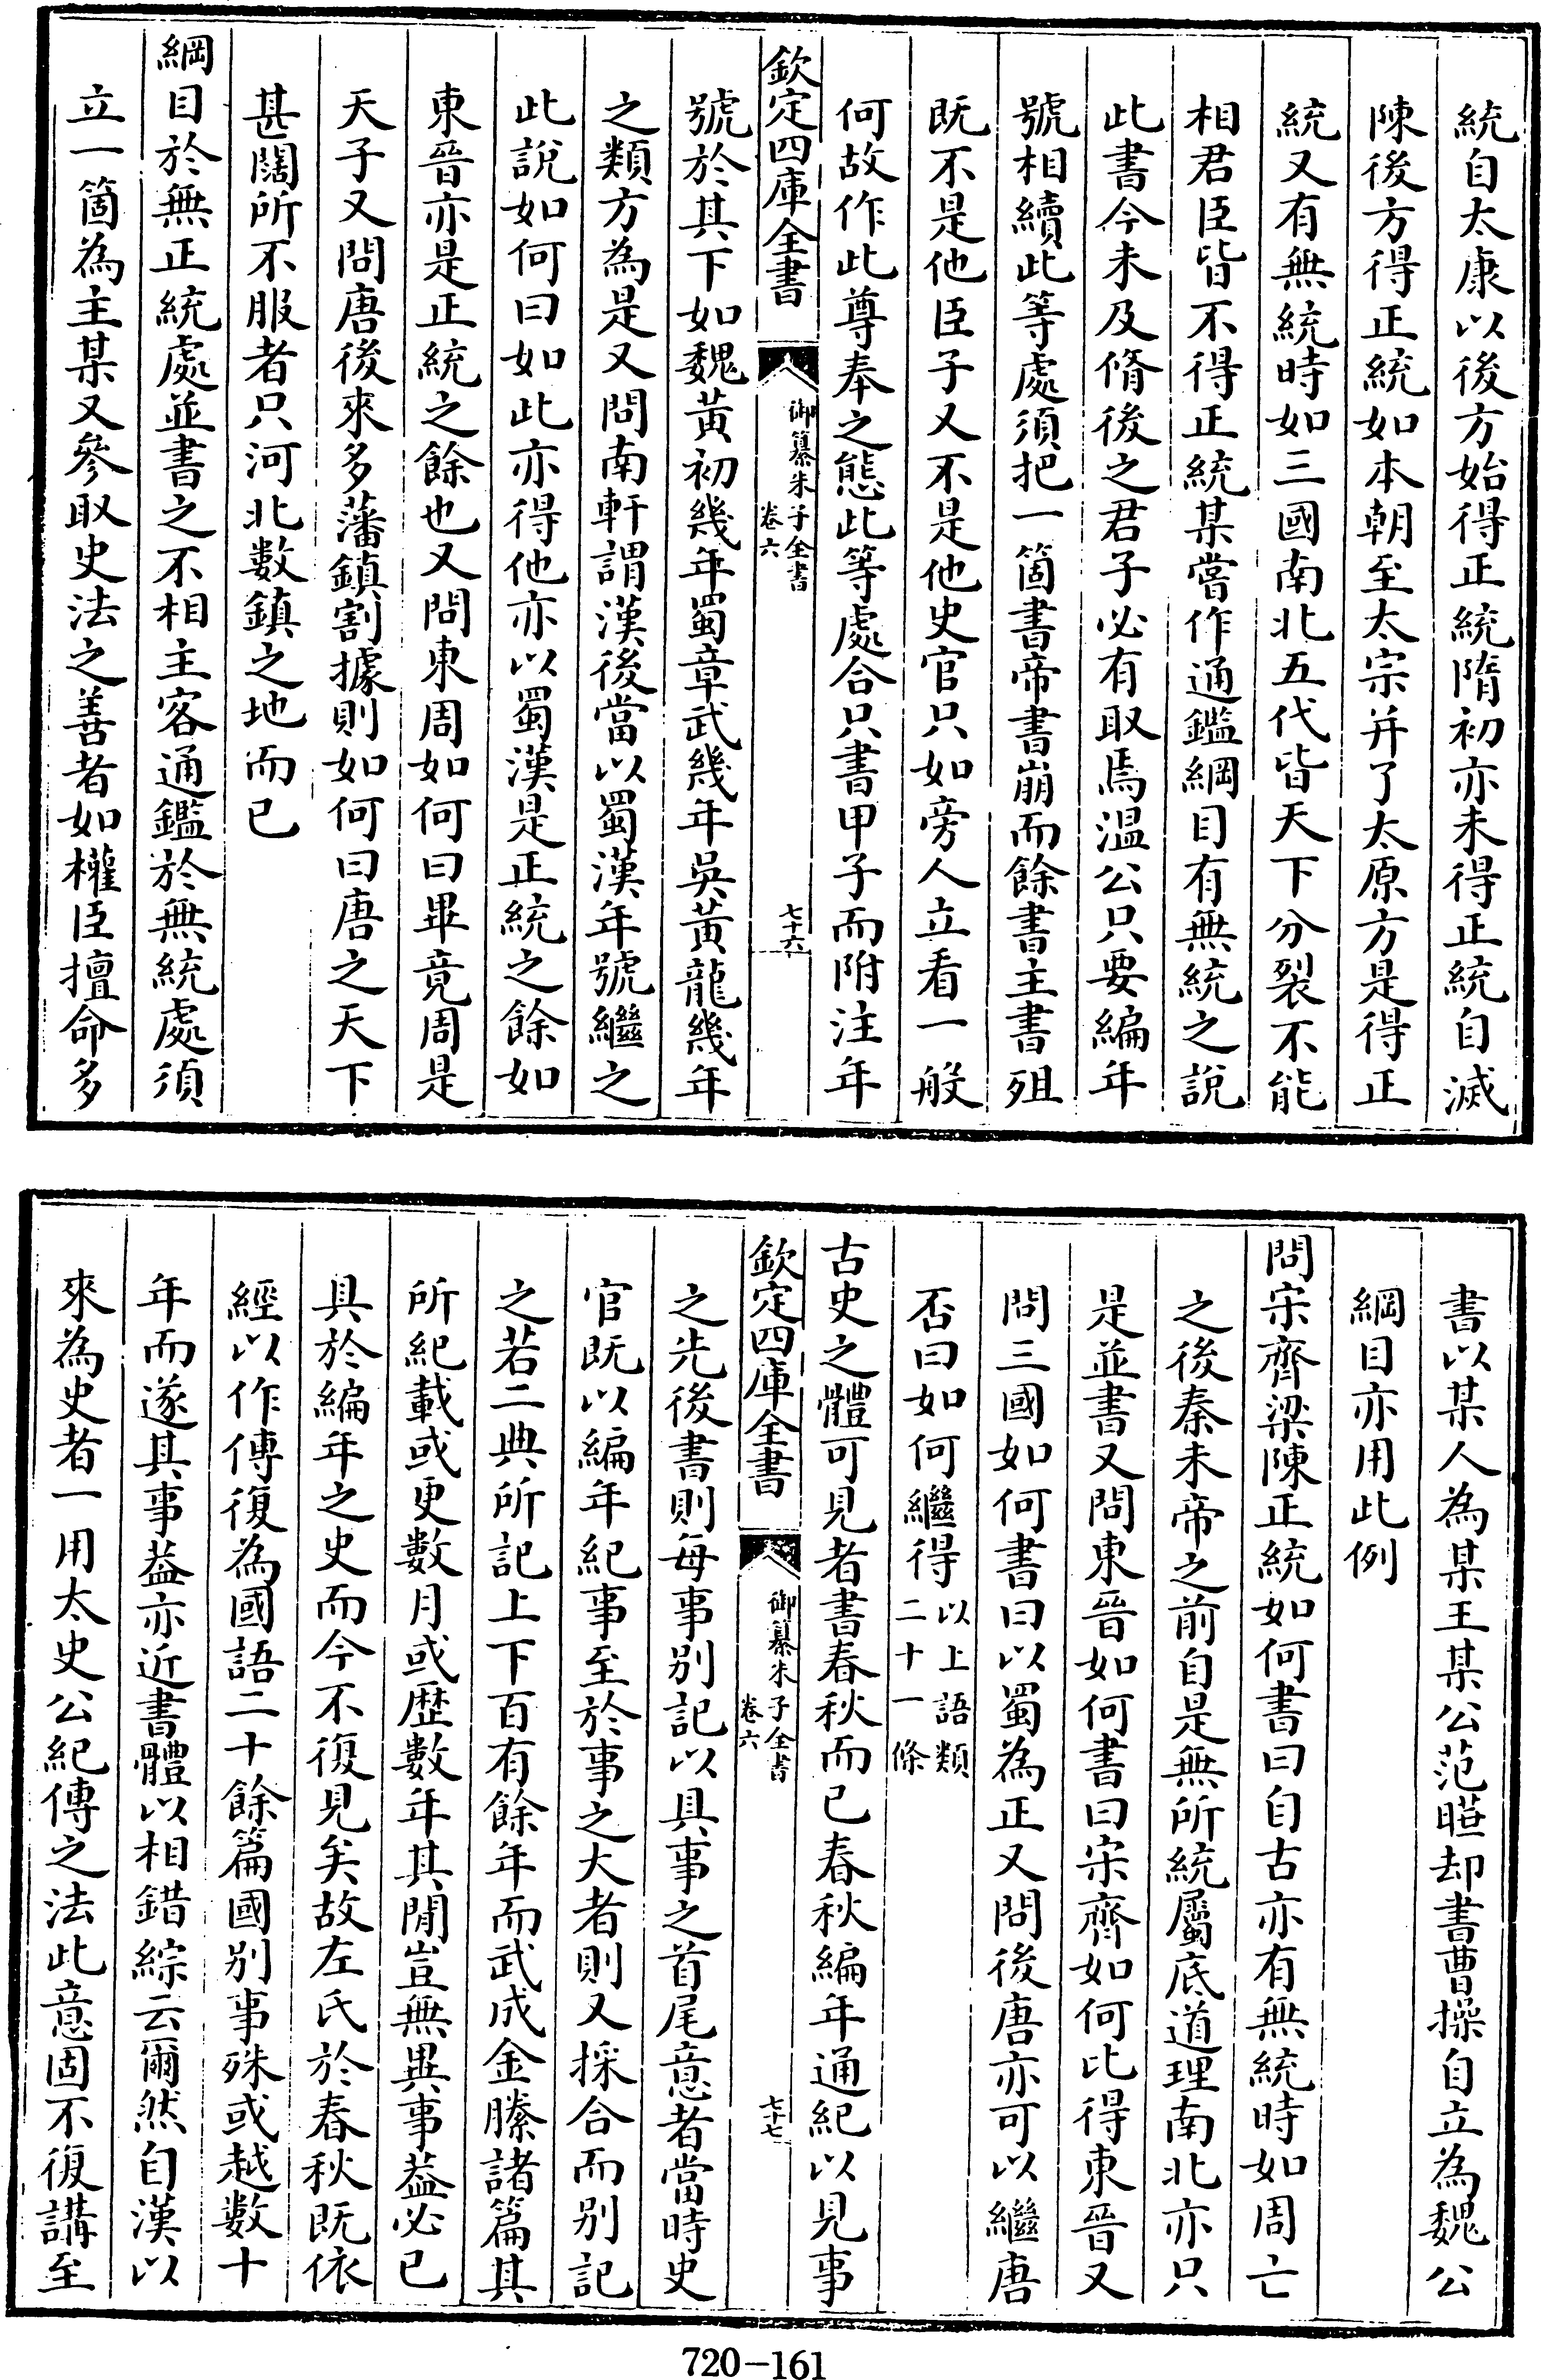 統自太康以後方始得正統隋初亦未得正統自滅
陳後方得正統如本朝至太宗并了太原方是得正
統又有無統時如三國南北五代皆天下分裂不能
相君臣皆不得正統某嘗作通鑑綱目有無統之說
此書今未及脩後之君子必有取焉温公只要編年
號相續此等處須把一箇書帝書崩而餘書主書殂
既不是他臣子又不是他史官只如旁人立看一般
何故作此尊奉之態此等處合只書甲子而附注年
欽定四庫全書
御纂朱子全書
卷六
七十六
號於其下如魏黃初幾年蜀章武幾年吳黃龍幾年
之類方為是又問南軒謂漢後當以蜀漢年號繼之
此說如何曰如此亦得他亦以蜀漢是正統之餘如
東晉亦是正統之餘也又問東周如何曰畢竟周是
天子又問唐後來多藩鎮割據則如何曰唐之天下
甚闊所不服者只河北數鎮之地而已
綱目於無正統處並書之不相主客通鑑於無統處須
立一箇為主某又參取史法之善者如權臣擅命多
書以某人為某王某公范曄却書曹操自立為魏公
綱目亦用此例
問宋齊梁陳正統如何書曰自古亦有無統時如周亡
之後秦未帝之前自是無所統屬底道理南北亦只
是並書又問東晉如何書曰宋齊如何比得東晉又
問三國如何書曰以蜀為正又問後唐亦可以繼唐
否曰如何繼得以上語類
二十一條
古史之體可見者書春秋而已春秋編年通紀以見事
欽定四庫全書
御纂朱子全書
卷六
七十七
之先後書則每事别記以具事之首尾意者當時史
官既以編年紀事至於事之大者則又採合而别記
之若二典所記上下百有餘年而武成金縢諸篇其
所紀載或更數月或歷數年其閒豈無異事葢必已
具於編年之史而今不復見矣故左氏於春秋既依
經以作傳復為國語二十餘篇國别事殊或越數十
年而遂其事葢亦近書體以相錯綜云爾然自漢以
來為史者一用太史公紀傳之法此意固不復講至
720-161